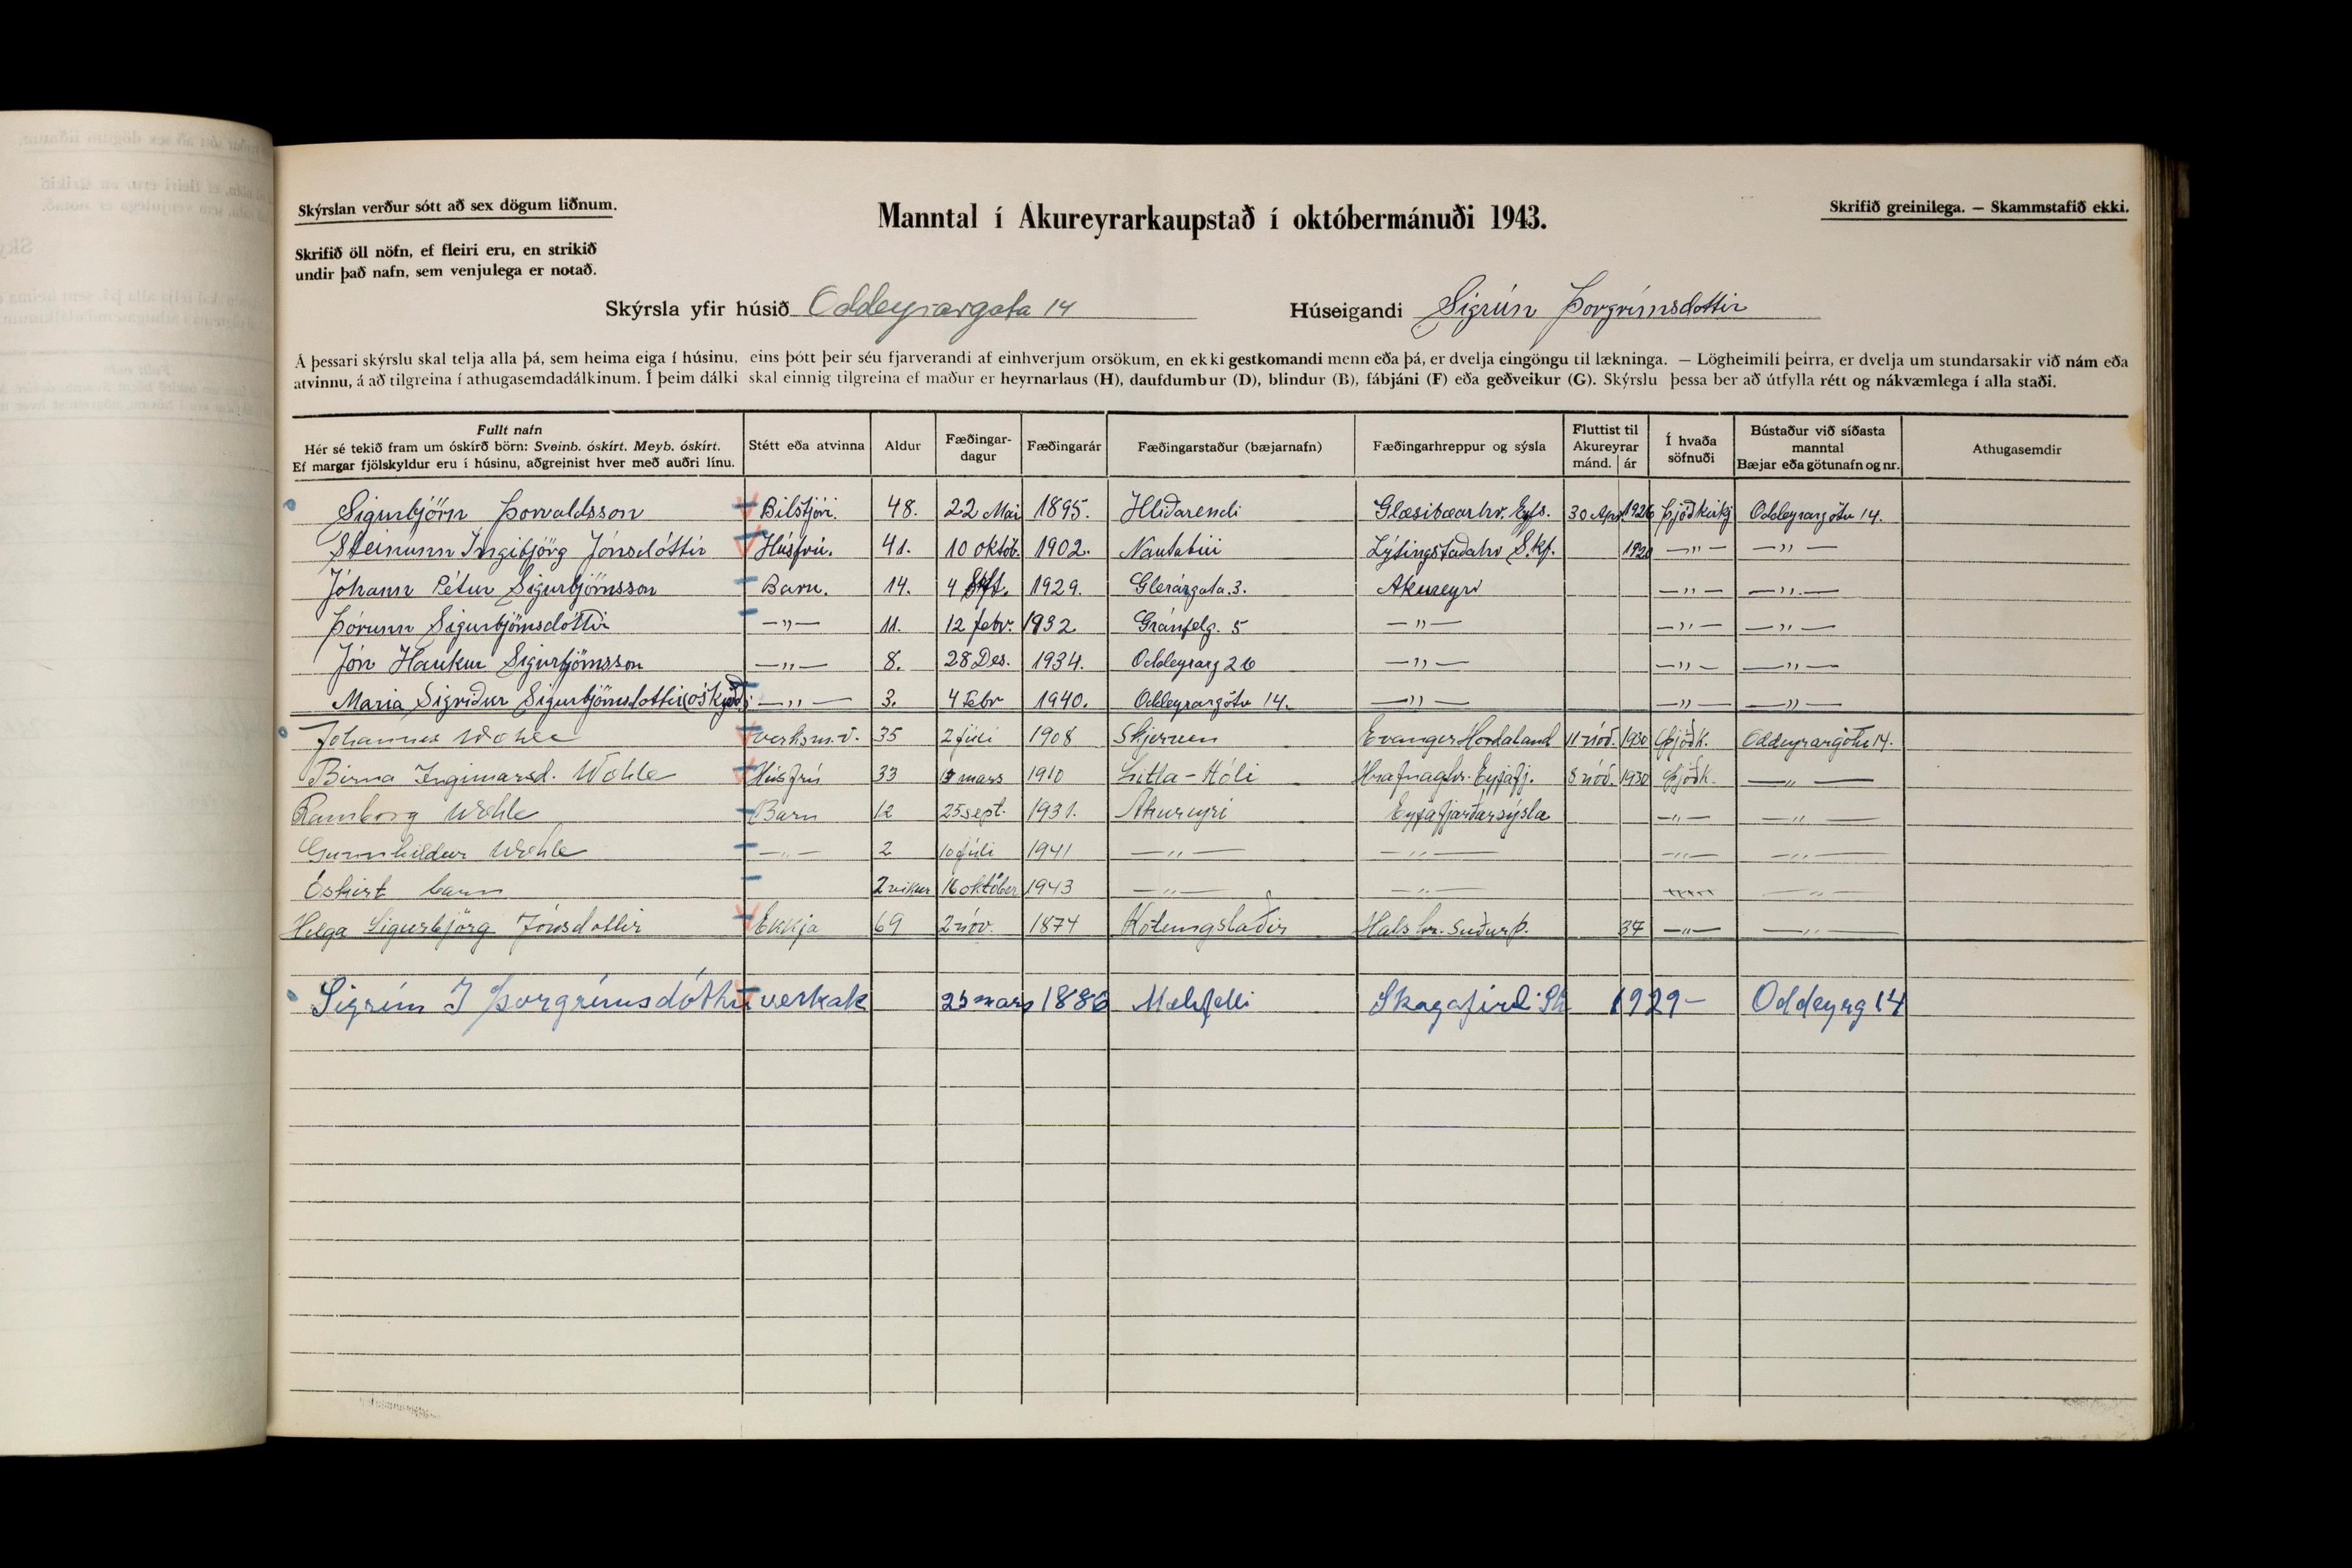 Skýrslan verður sótt að sex dögum liðnum.
Manntal í Akureyrarkaupstað í októbermánuði 1943.
Skrifið greinilega. — Skammstafið ekki.
Skrifið öll nöfn, ef fleiri eru, en strikið
undir það nafn, sem venjulega er notað.
Skýrsla yfir húsið Oddeyrargata 14 Húseigandi Sigrún Þorgrímsdottir
Á þessari skýrslu skal telja alla þá, sem heima eiga í húsinu, eins þótt þeir séu fjarverandi af einhverjum orsökum, en ekki gestkomandi menn eða þá, er dvelja eingöngu til lækninga. — Lögheimili þeirra, er dvelja um stundarsakir við nám eða
atvinnu, á að tilgreina í athugasemdadálkinum. Í þeim dálki skal einnig tilgreina ef maður er heyrnarlaus (H), daufdumbur (D), blindur (B), fábjáni (F) eða geðveikur (G). Skýrslu þessa ber að útfylla rétt og nákvæmlega í alla staði.
Fullt nafn
Hér sé tekið fram um óskírð börn: Sveinb. óskírt. Meyb. óskírt.
Ef margar fjölskyldur eru í húsinu, aðgreinist hver með auðri línu.
Stétt eða atvinna
Aldur
Fæðingar-
dagur
Fæðingarár
Fæðingarstaður (bæjarnafn)
Fæðingarhreppur og sýsla
Fluttist til
Akureyrar
mánd. ár
Í hvaða
söfnuði
Bústaður við síðasta
manntal
Bæjar eða götunafn og nr.
Athugasemdir
Sigurbjörn Þorvaldsson Bílstjóri. 48. 22 Mai 1895. Hlíðarendi Glæsibæarhr. Eyfs. 30 Apr. 1926 Þjóðkirkj Oddeyrargötu 14.
Steinunn Ingibjörg Jónsdóttir Húsfrú. 41. 10 októb. 1902. Nautabúi Lýtingstaðahr Skf. 1920 —"— —"—
Jóhann Pétur Sigurbjörnsson Barn. 14. 4 Sept. 1929. Glerárgata.3. Akureyri —"— —"—
Þórunn Sigurbjörnsdóttir —"— 11. 12 febr. 1932 Gránfelg. 5 —"— —"— —"—
Jón Haukur Sigurbjörnsson —"— 8. 28 Des. 1934. Oddeyrarg 26 —"— —"— —"—
Maria Sigríður Sigurbjörnsdottir (óskýrð) —"— 3. 4 Febr 1940. Oddeyrargötu 14. —"— —"— —"—
Johannes Wöhle verksm.v. 35 2 júlí 1908 Skjerven Evanger Hordaland 11 nóv. 1930 Þjóðk. Oddeyrargötu 14.
Birna Ingimarsd. Wöhle Húsfrú 33 mars 1910 Litla-Hóli Hrafnaghr. Eyjafj. 8 nóv. 1930 Þjóðk. —"—
Ramborg Wöhle Barn 12 25 sept. 1931. Akureyri Eyjafjarðarsýsla —"— —"—
Gunnhildur Wöhle —"— 2 10 júlí 1941 —"— —"— —"— —"—
Óskírt barn 2 vikur 16 október 1943 —"— —"— —"—
Helga Sigurbjörg Jónsdottir Ekkja 69 2 nóv. 1874 Kotungstaðir Hals hr. Suðurþ. 37 —"— —"—
Sigrún I Þorgrímsdóttir verkak 25 mars 1886 Mælifelli Skagafirði 1929 — Oddeyrg 14